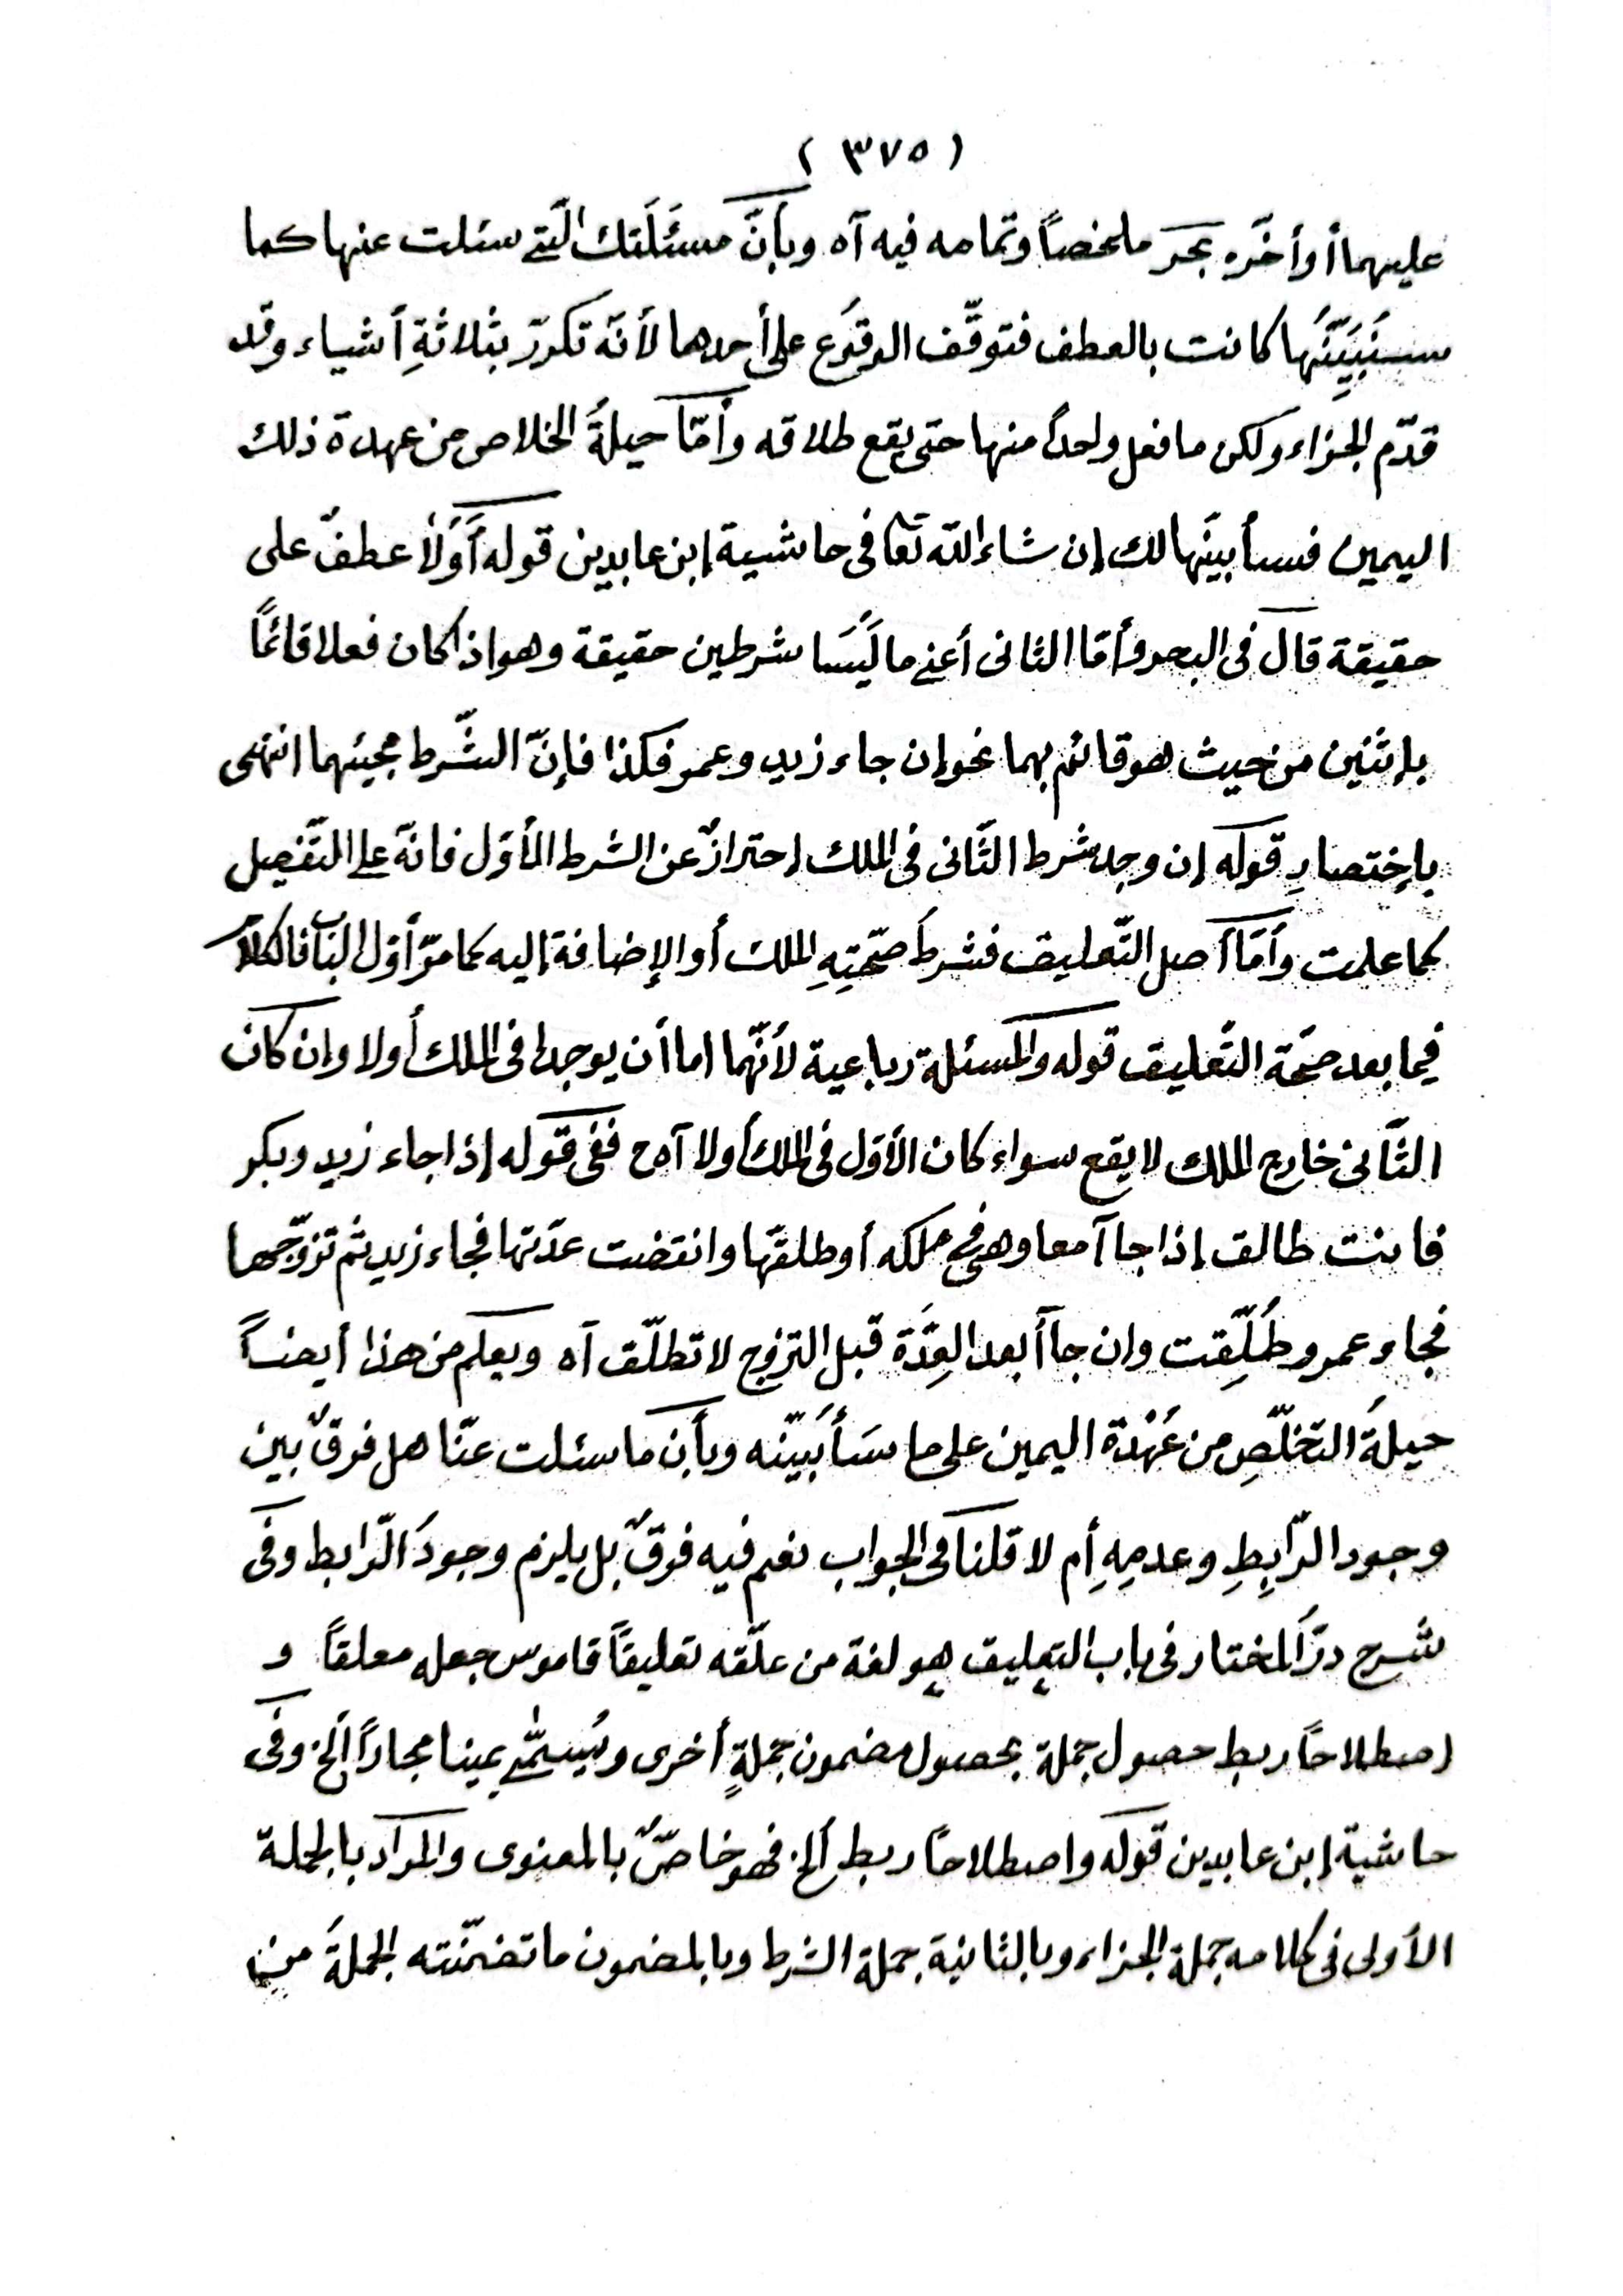 ( ٣٧٥ )
عليهما أو أخّره بحر ملخصاً وتمامه فيه آه وبأنّ مسئَلَتك الّتي سئلت عنها كما
سنَبَيِّنُها كانت بالعطف فتوقّف الوقوَع على أحدهما لأنّه تكرّر بثلاثةِ أشياء وقد
قدّم الجزاء ولكن ما فعل واحداً منها حتى يقع طلاقه وأمّا حيلةُ الخلاص من عهدة ذلك
اليمين فسأبينّها لك إن شاء الله تعا فى حاشية إبن عابدين قوله أَوّلاً عطفٌ على
حقيقة قال فى البحر وأمّا الثانى أعنى ما لَيسَا شرطين حقيقة وهو اذا كان فعلا قائمًا
بإثنين من حيث هو قائم بهما نحو إن جاء زيد وعمرو فكذا فإنّ الشّرط مجيئهما انتهى
بإختصارِ قوله إن وجد شرط الثّانى فى الملك إحترازٌ عن الشرط الأوّل فانّه على التّفصيل
كما علمت وأمّا أصل التّعليق فشرطُ صحّتِهِ الملك أو الإضافة إليه كما مرّ أوّل الباب فالكلا
فيما بعد صحّة التّعليق قوله والمسئلة رباعية لأنّهما اما أن يوجدا فى الملك أولا وإن كان
الثّانى خارج الملك لا يقع سواء كان الأوّل فى الملك أولا آه ح ففى قوله إذا جاء زيد وبكر
فانت طالق إذا جاآ معا وهى فى ملكه أو طلقّها وانقضت عدّتها فجاء زيد ثم تزوّجها
فجاء عمرو طُلِّقت وان جاآ بعد العِدَّة قبل التزوج لا تطلّق آه ويعلم من هذا أيضاً
حيلةُ التخلّصِ من عُهْدة اليمين على ما سَأُبَيّنه وبأن ما سئلت عنّا هل فرقٌ بين
وجود الرّابِطِ وعدمِهِ أم لا قلنا فى الجواب نعم فيه فرقٌ بل يلزم وجودُ الرّابط وفى
شرح درّ المختار فى باب التعليق هو لغة من علّقه تعليقاً قاموس جعله معلقاً و
اصطلاحاً ربط حصول جملة بحصول مضمون جملةٍ أخرى ويُسمّى يمينا مجازاً الخ وفى
حاشية إبن عابدين قوله واصطلاحاً ربط الخ فهو خاصّ بالمعنوى والمراد بالجملة
الأولى فى كلامه جملة الجزاء وبالثانية جملة الشرط وبالمضمون ما تضمّنته الجملةُ من